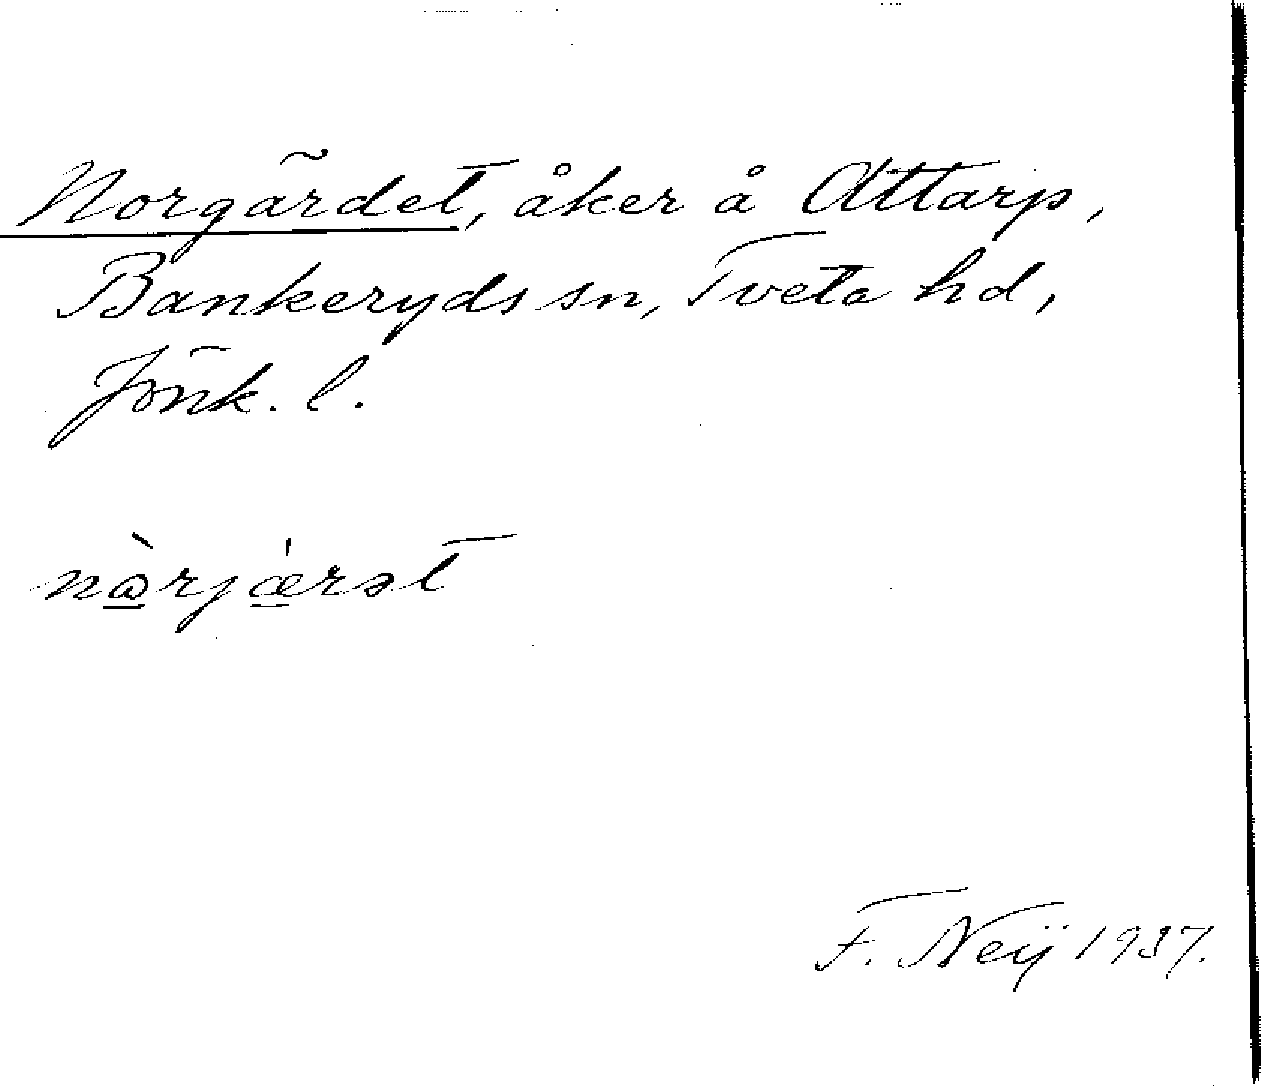 Norgärdet, åker å Attarp,
Bankeryds sn, Tveta hd,
Jönk. l.
nàrjǽrət
F. Neij 1937.